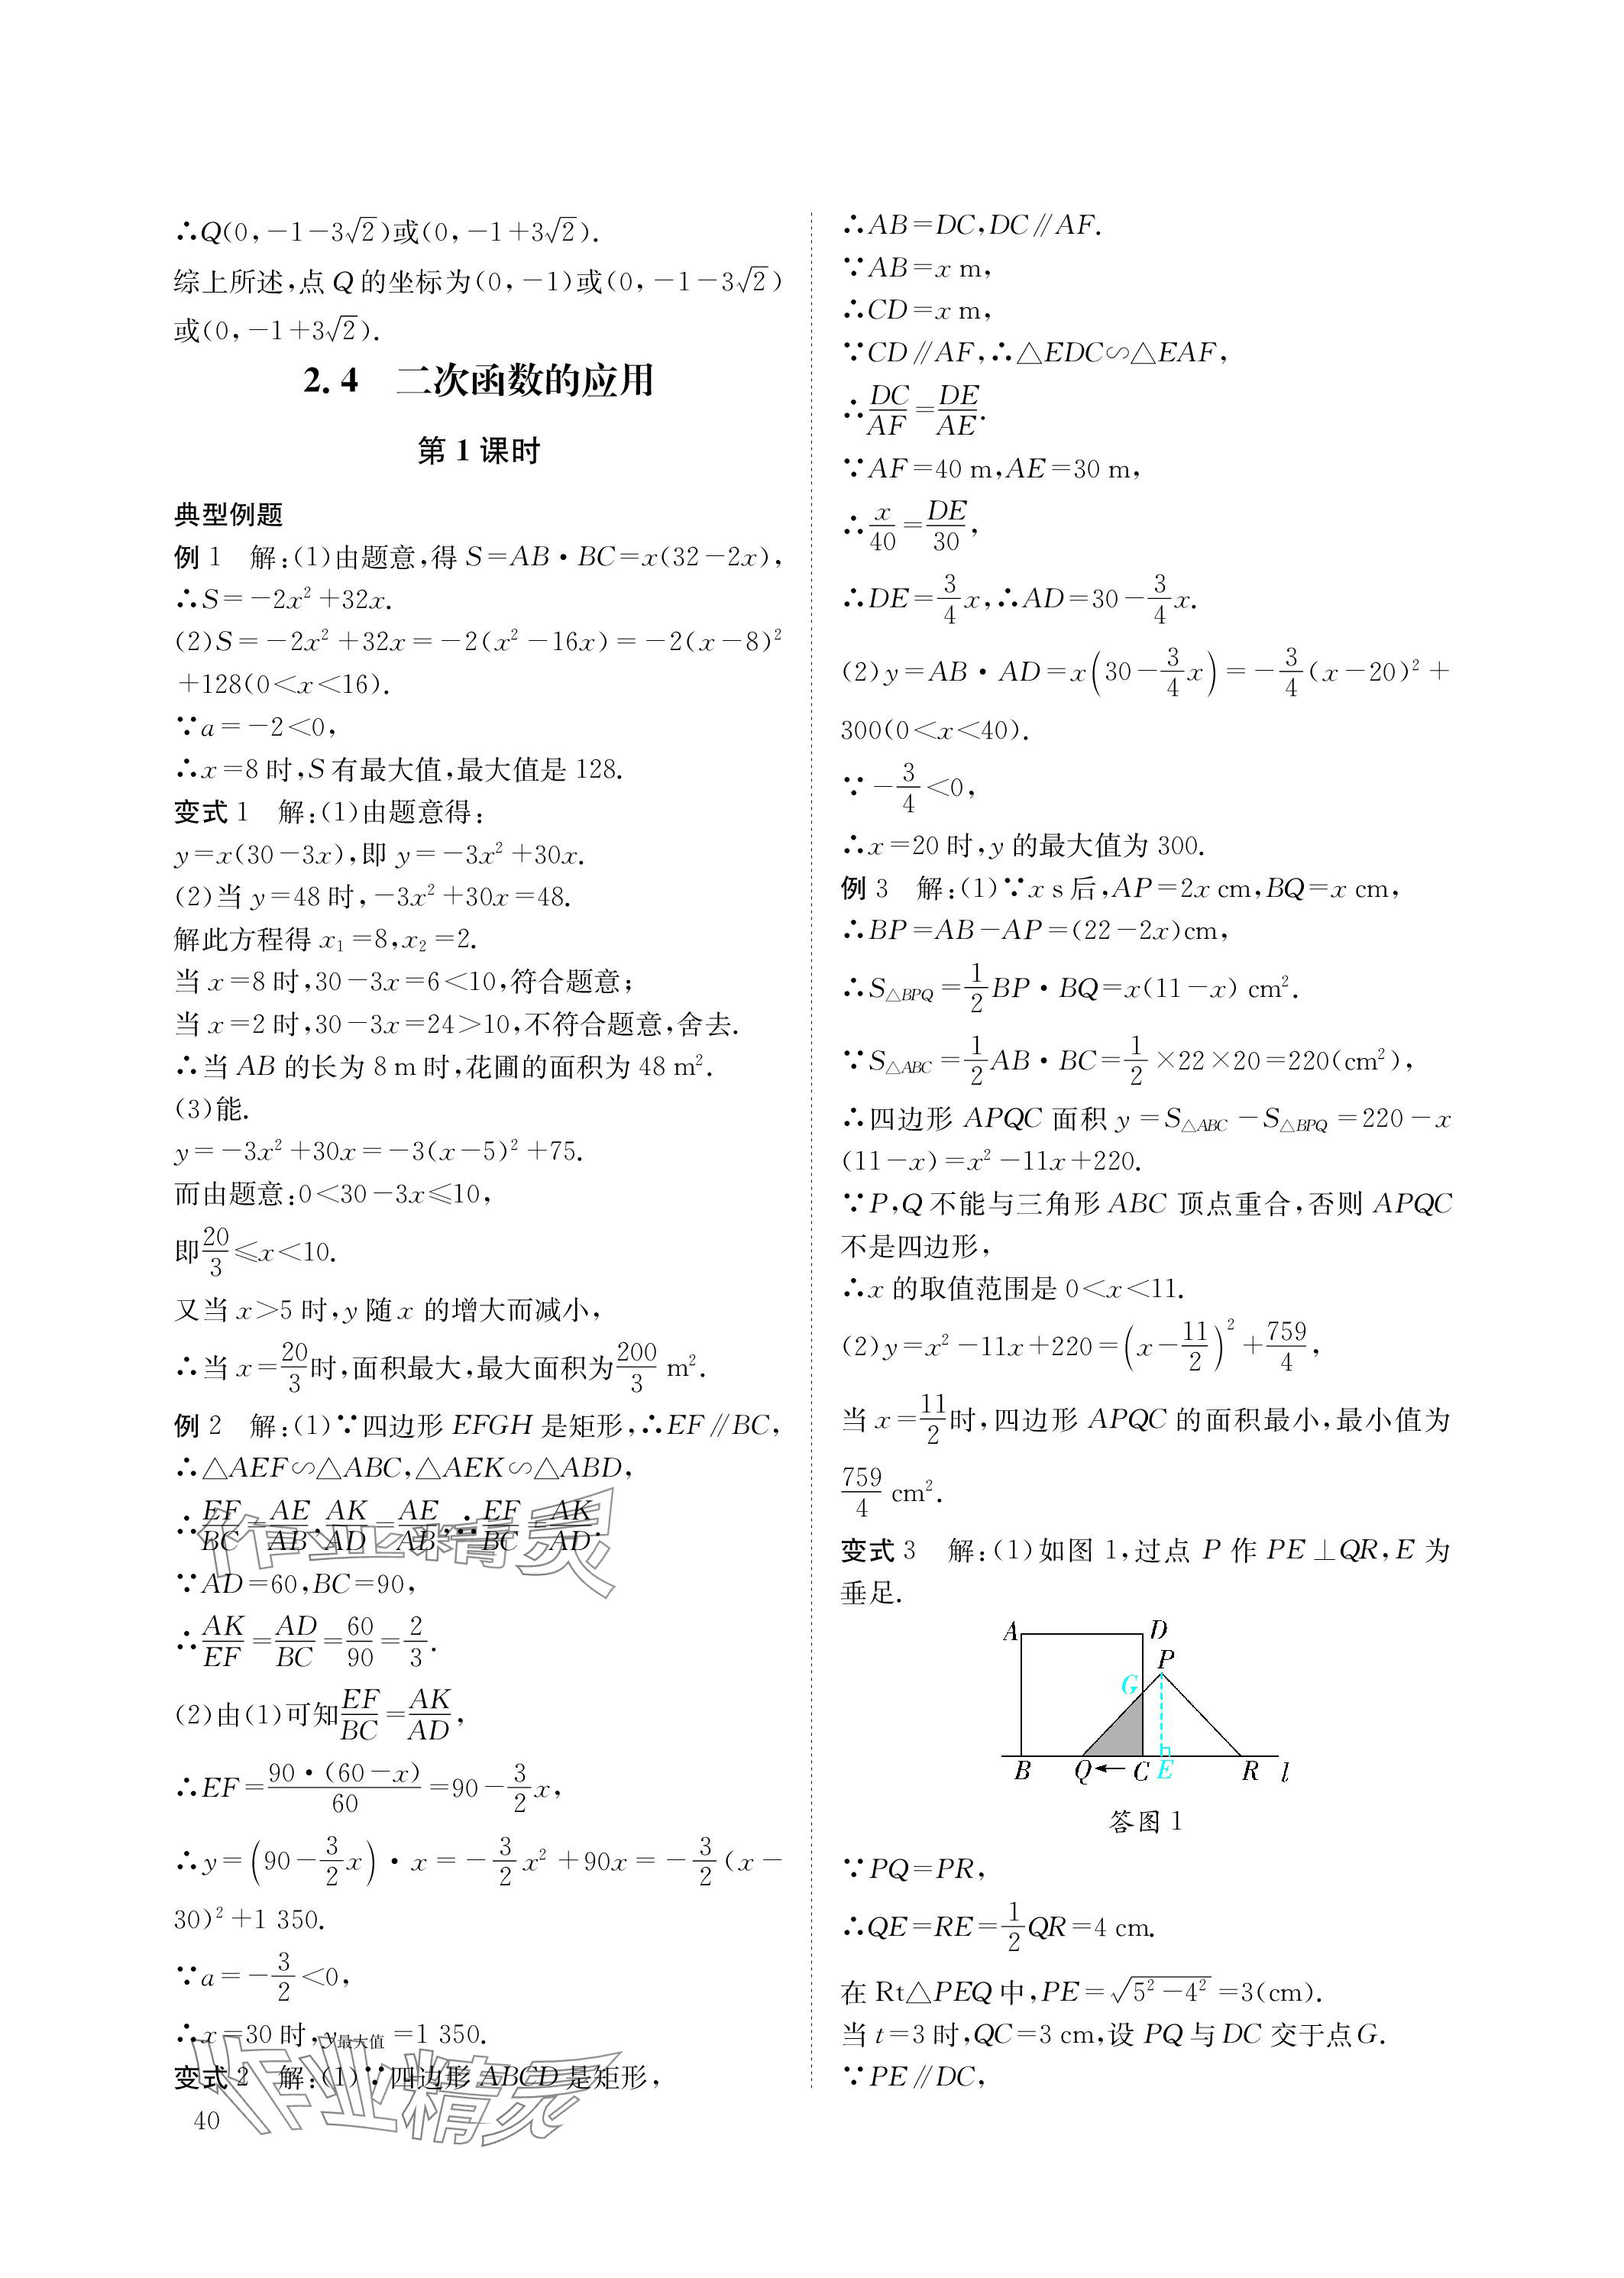 ∴Q(0,-1-3√2)或(0,-1+3√2).
综上所述,点 Q 的坐标为(0,-1)或(0,-1-3√2)
或(0,-1+3√2).
2.4 二次函数的应用
第 1 课时
典型例题
例 1 解:(1)由题意,得 S=AB·BC=x(32-2x),
∴S=-2x²+32x.
(2)S=-2x²+32x=-2(x²-16x)=-2(x-8)²
+128(0<x<16).
∵a=-2<0,
∴x=8 时,S 有最大值,最大值是 128.
变式 1 解:(1)由题意得:
y=x(30-3x),即 y=-3x²+30x.
(2)当 y=48 时,-3x²+30x=48.
解此方程得 x₁=8,x₂=2.
当 x=8 时,30-3x=6<10,符合题意;
当 x=2 时,30-3x=24>10,不符合题意,舍去.
∴当 AB 的长为 8 m 时,花圃的面积为 48 m².
(3)能.
y=-3x²+30x=-3(x-5)²+75.
而由题意:0<30-3x≤10,
即20/3≤x<10.
又当 x>5 时,y 随 x 的增大而减小,
∴当 x=20/3时,面积最大,最大面积为200/3 m².
例 2 解:(1)∵四边形 EFGH 是矩形,∴EF∥BC,
∴△AEF∽△ABC,△AEK∽△ABD,
∴EF/BC=AE/AB,AK/AD=AE/AB,∴EF/BC=AK/AD.
∵AD=60,BC=90,
∴AK/EF=AD/BC=60/90=2/3.
(2)由(1)可知EF/BC=AK/AD,
∴EF=90·(60-x)/60=90-3/2x,
∴y=(90-3/2x)·x=-3/2x²+90x=-3/2(x-
30)²+1 350.
∵a=-3/2<0,
∴x=30 时,y最大值=1 350.
变式 2 解:(1)∵四边形 ABCD 是矩形,
40
∴AB=DC,DC∥AF.
∵AB=x m,
∴CD=x m,
∵CD∥AF,∴△EDC∽△EAF,
∴DC/AF=DE/AE.
∵AF=40 m,AE=30 m,
∴x/40=DE/30,
∴DE=3/4x,∴AD=30-3/4x.
(2)y=AB·AD=x(30-3/4x)=-3/4(x-20)²+
300(0<x<40).
∵-3/4<0,
∴x=20 时,y 的最大值为 300.
例 3 解:(1)∵x s 后,AP=2x cm,BQ=x cm,
∴BP=AB-AP=(22-2x)cm,
∴S△BPQ=1/2BP·BQ=x(11-x) cm².
∵S△ABC=1/2AB·BC=1/2×22×20=220(cm²),
∴四边形 APQC 面积 y=S△ABC-S△BPQ=220-x
(11-x)=x²-11x+220.
∵P,Q 不能与三角形 ABC 顶点重合,否则 APQC
不是四边形,
∴x 的取值范围是 0<x<11.
(2)y=x²-11x+220=(x-11/2)²+759/4,
当 x=11/2时,四边形 APQC 的面积最小,最小值为
759/4 cm².
变式 3 解:(1)如图 1,过点 P 作 PE⊥QR,E 为
垂足.
A D
P
G
B Q C E R l
答图 1
∵PQ=PR,
∴QE=RE=1/2QR=4 cm.
在 Rt△PEQ 中,PE=√(5²-4²)=3(cm).
当 t=3 时,QC=3 cm,设 PQ 与 DC 交于点G.
∵PE∥DC,
作业精灵
作业精灵